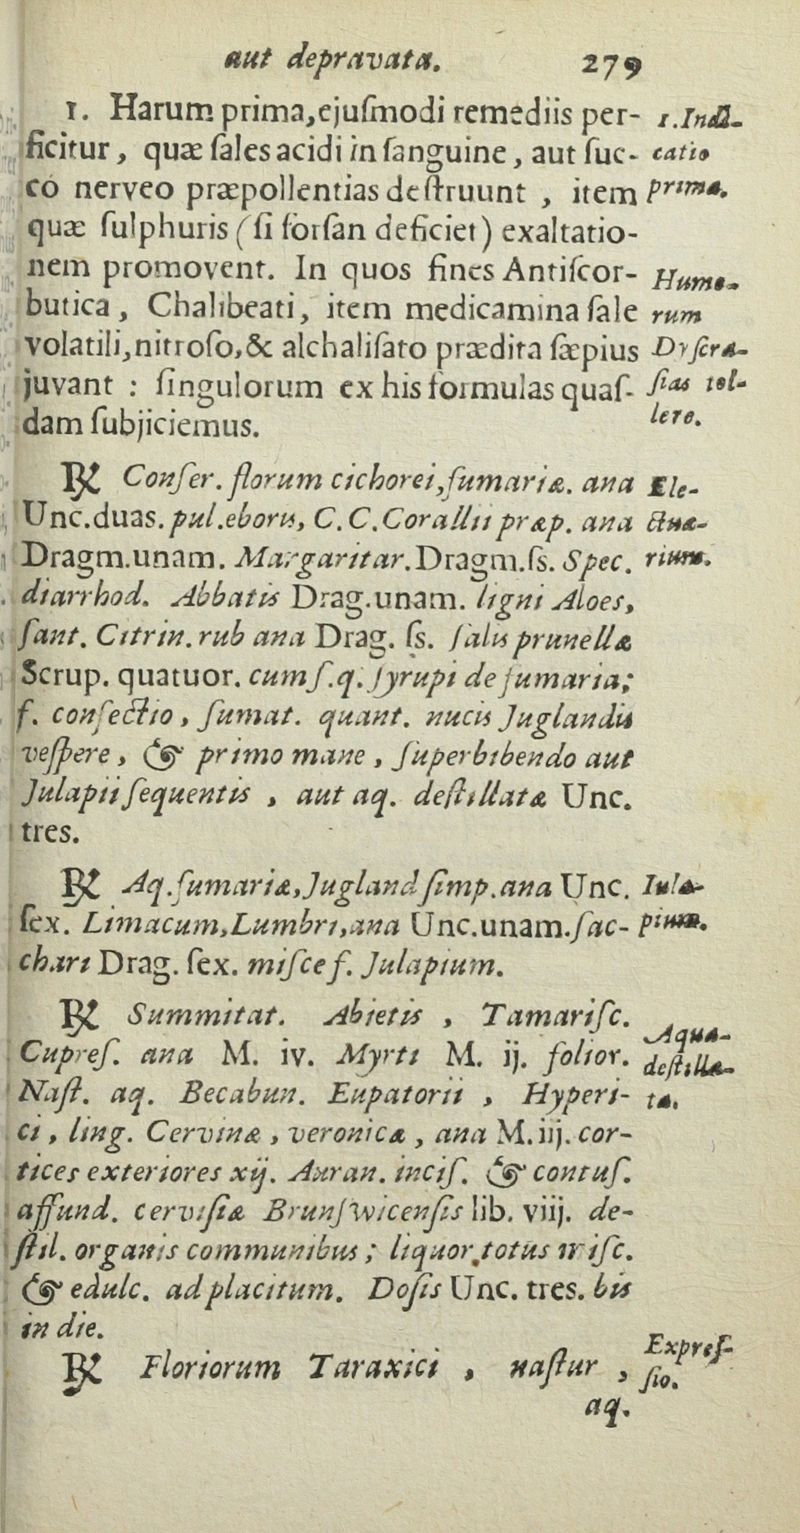 aut depravata. 279
1. Harum prima, ejuſmodi remediis per-
ficitur, quæ ſales acidi in ſanguine, aut ſuc-
co nerveo præpollentias deſtruunt, item
quæ ſulphuris (ſi forſan deficiet) exaltatio-
nem promovent. In quos fines Antiſcor-
butica, Chalibeati, item medicamina ſale
volatili, nitroſo, & alchaliſato prædita ſæpius
juvant : ſingulorum ex his formulas quaſ-
dam ſubjiciemus.
1. Indi-
catio
prima.
Humo-
rum
Dyſcra-
ſias tol-
lere.
℞ Conſer. florum cichorei, fumariæ. ana
Unc. duas. pul. eboris, C. C. Corallii præp. ana
Dragm. unam. Margaritar. Dragm. ſs. Spec.
diarrhod. Abbatis Drag. unam. ligni Aloes,
ſant. Citrin. rub ana Drag. ſs. ſalis prunellæ
Scrup. quatuor. cum ſ. q. ſyrupi de fumaria;
f. confectio, ſumat. quant. nucis Juglandis
veſpere, & primo mane, ſuperbibendo aut
Julapii ſequentis, aut aq. deſtillatæ Unc.
tres.
Ele-
ctua-
rium.
℞ Aq. fumariæ, Jugland ſimp. ana Unc.
ſex. Limacum, Lumbri, ana Unc. unam. ſac-
chari Drag. ſex. miſce f. Julapium.
Iula-
pium.
℞ Summitat. Abietis, Tamariſc.
Cupreſ. ana M. iv. Myrti M. ij. folior.
Naſt. aq. Becabun. Eupatorii, Hyperi-
ci, ling. Cervinæ, veronicæ, ana M. iij. cor-
tices exteriores xij. Auran. inciſ. & contuſ.
affund. cerviſiæ Brunſwicenſis lib. viij. de-
ſtil. organis communibus; liquor totus miſc.
& edulc. ad placitum. Doſis Unc. tres. bis
in die.
Aqua-
deſtilla-
ta.
℞ Floriorum Taraxici, naſtur,
Expreſ-
ſio.
aq.